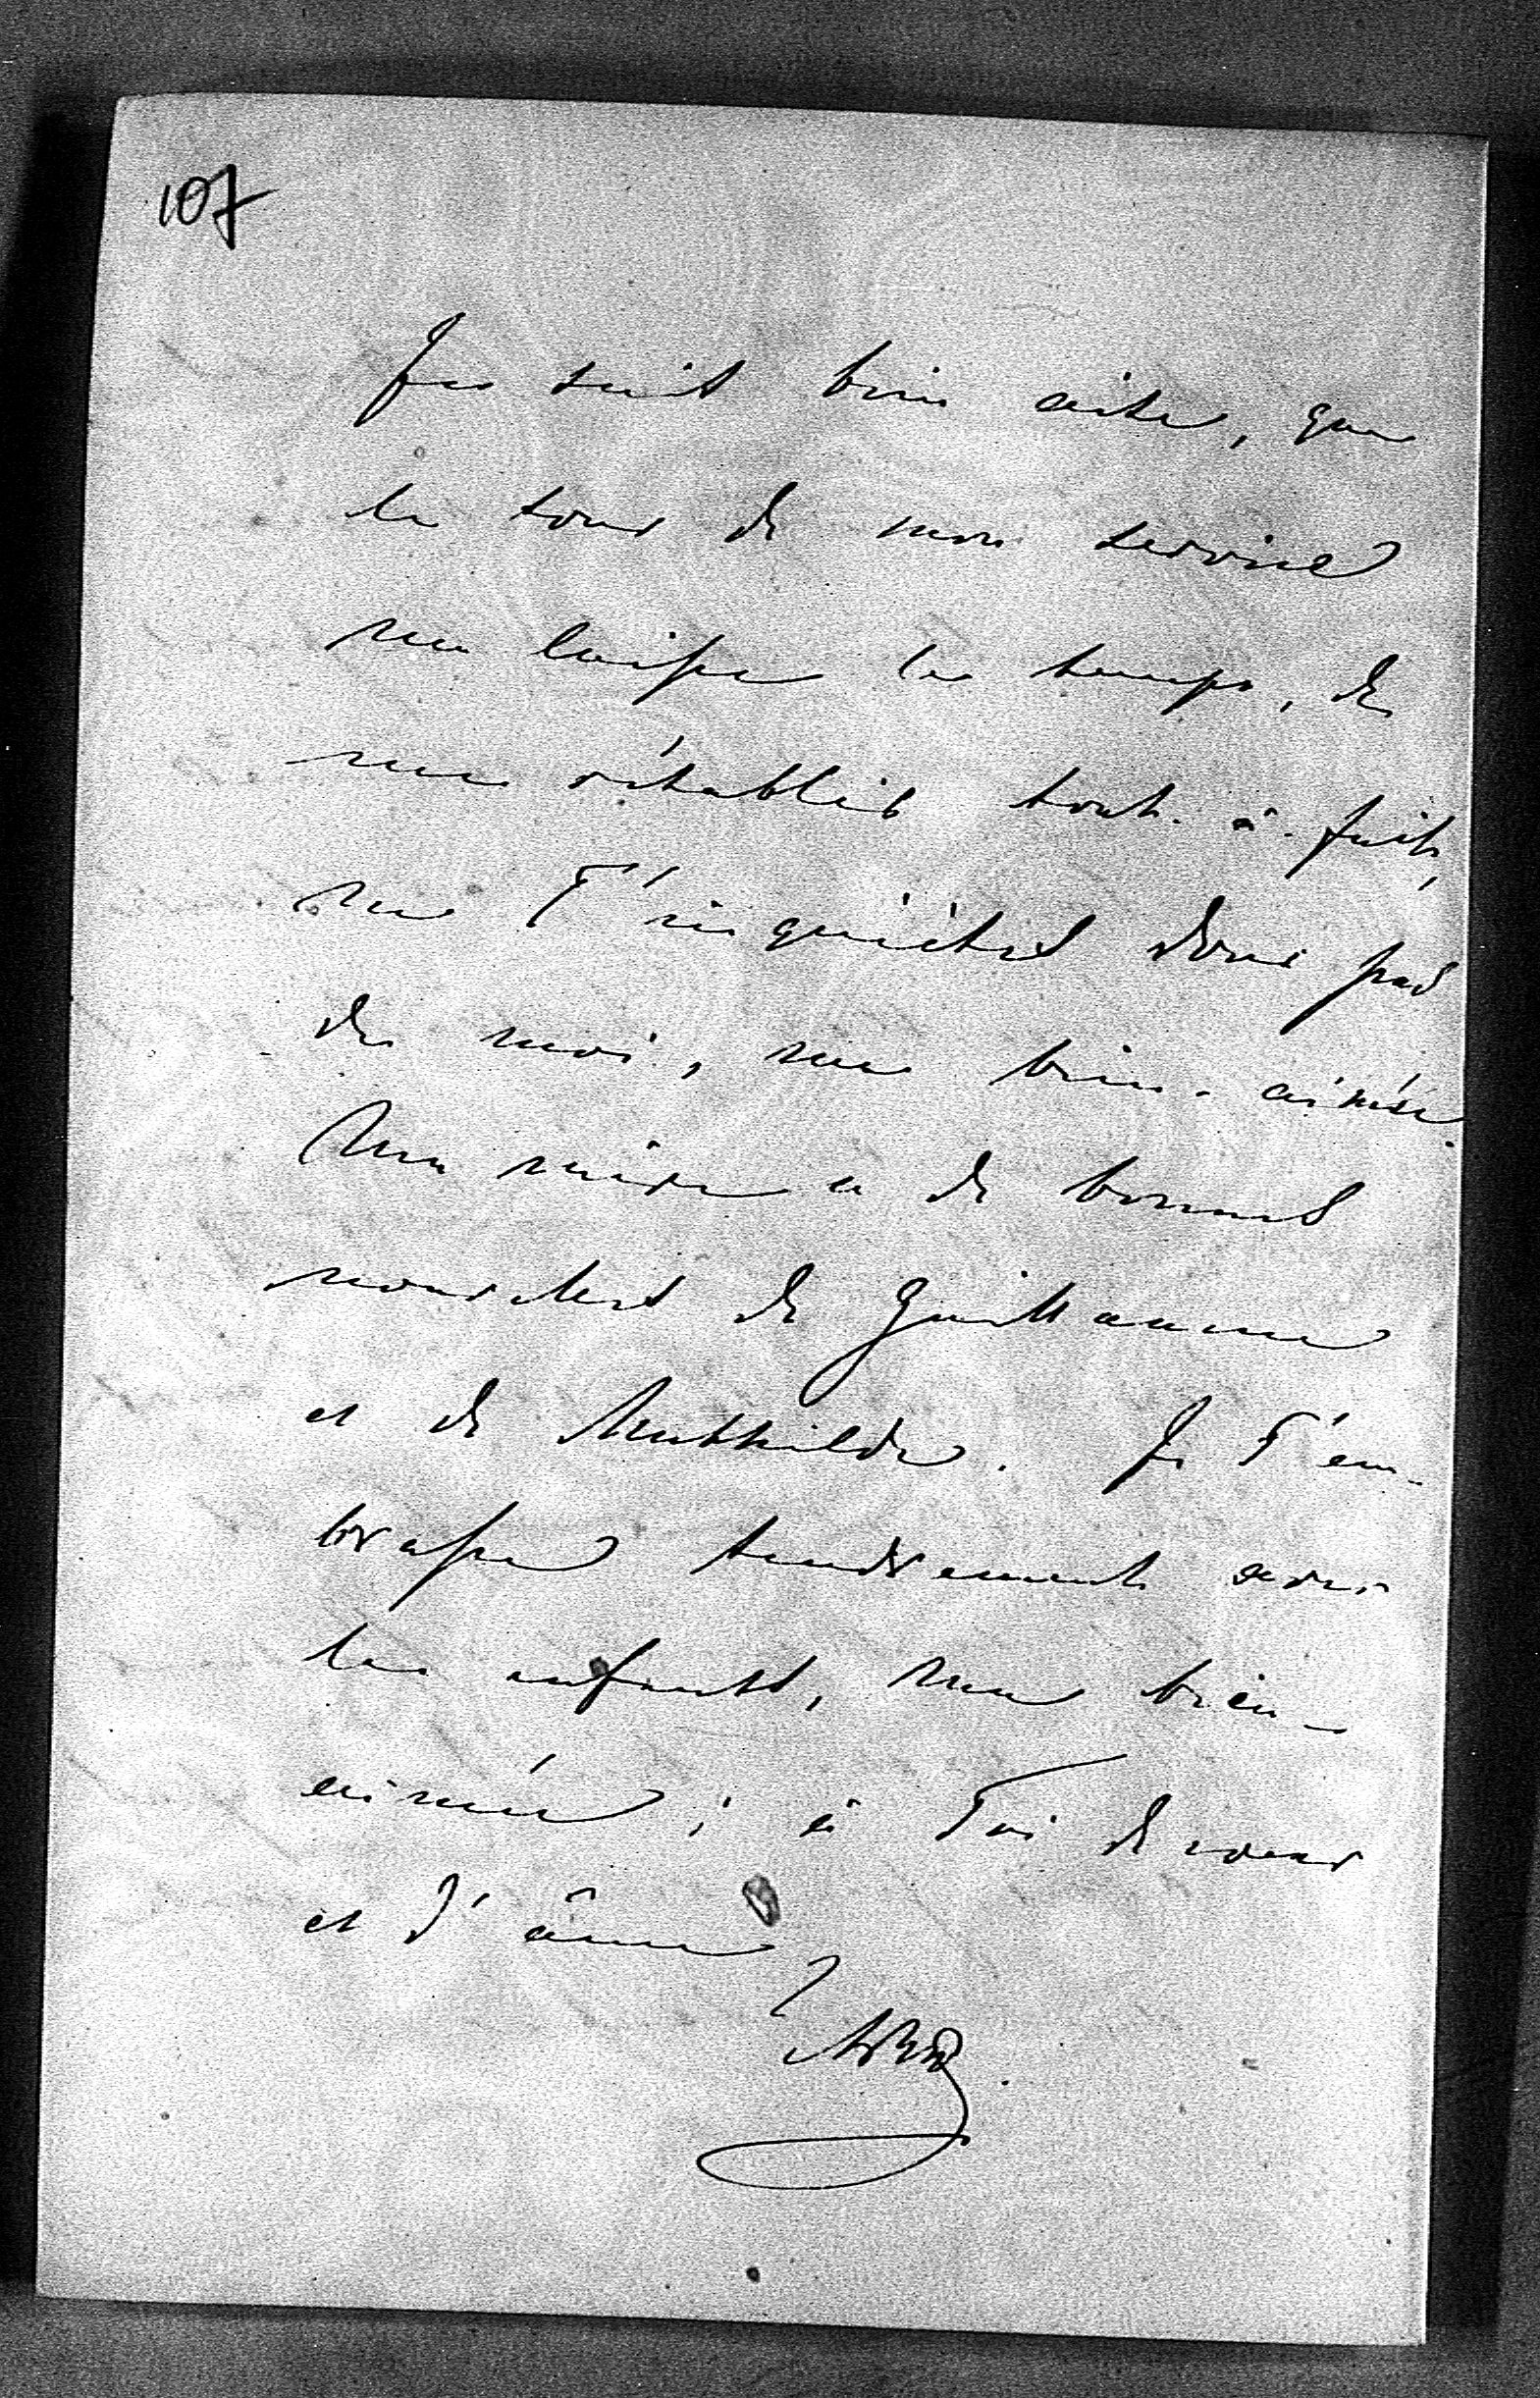 107
Je suis bien aise, que
le tour de mon service
me laisse le temps, de
me rétablir tout-à-fait,
ne T'inquiètes donc pas
de moi, ma bien-aimée.
Ma mère a de bonnes
nouvelles de Guillaume
et de Mathilde. Je T'em-
brasse tendrement avec
les enfants, ma bien-
aimée; à Toi de coeur
et d'âme